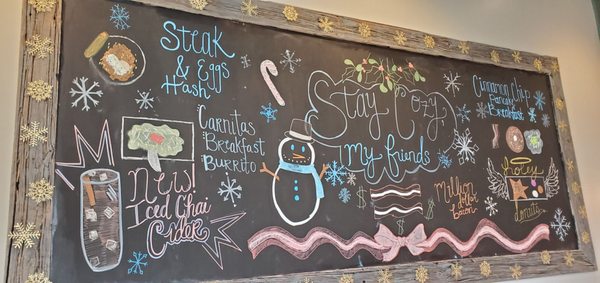 Steak
& Eggs
Hash
Carnitas
Breakfast
Burrito
New!
Iced Chai
Cider
Stay Cozy
My friends
Million
dollar
bacon
Cinnamon Chip
Pancake
Breakfast
Holey
donuts